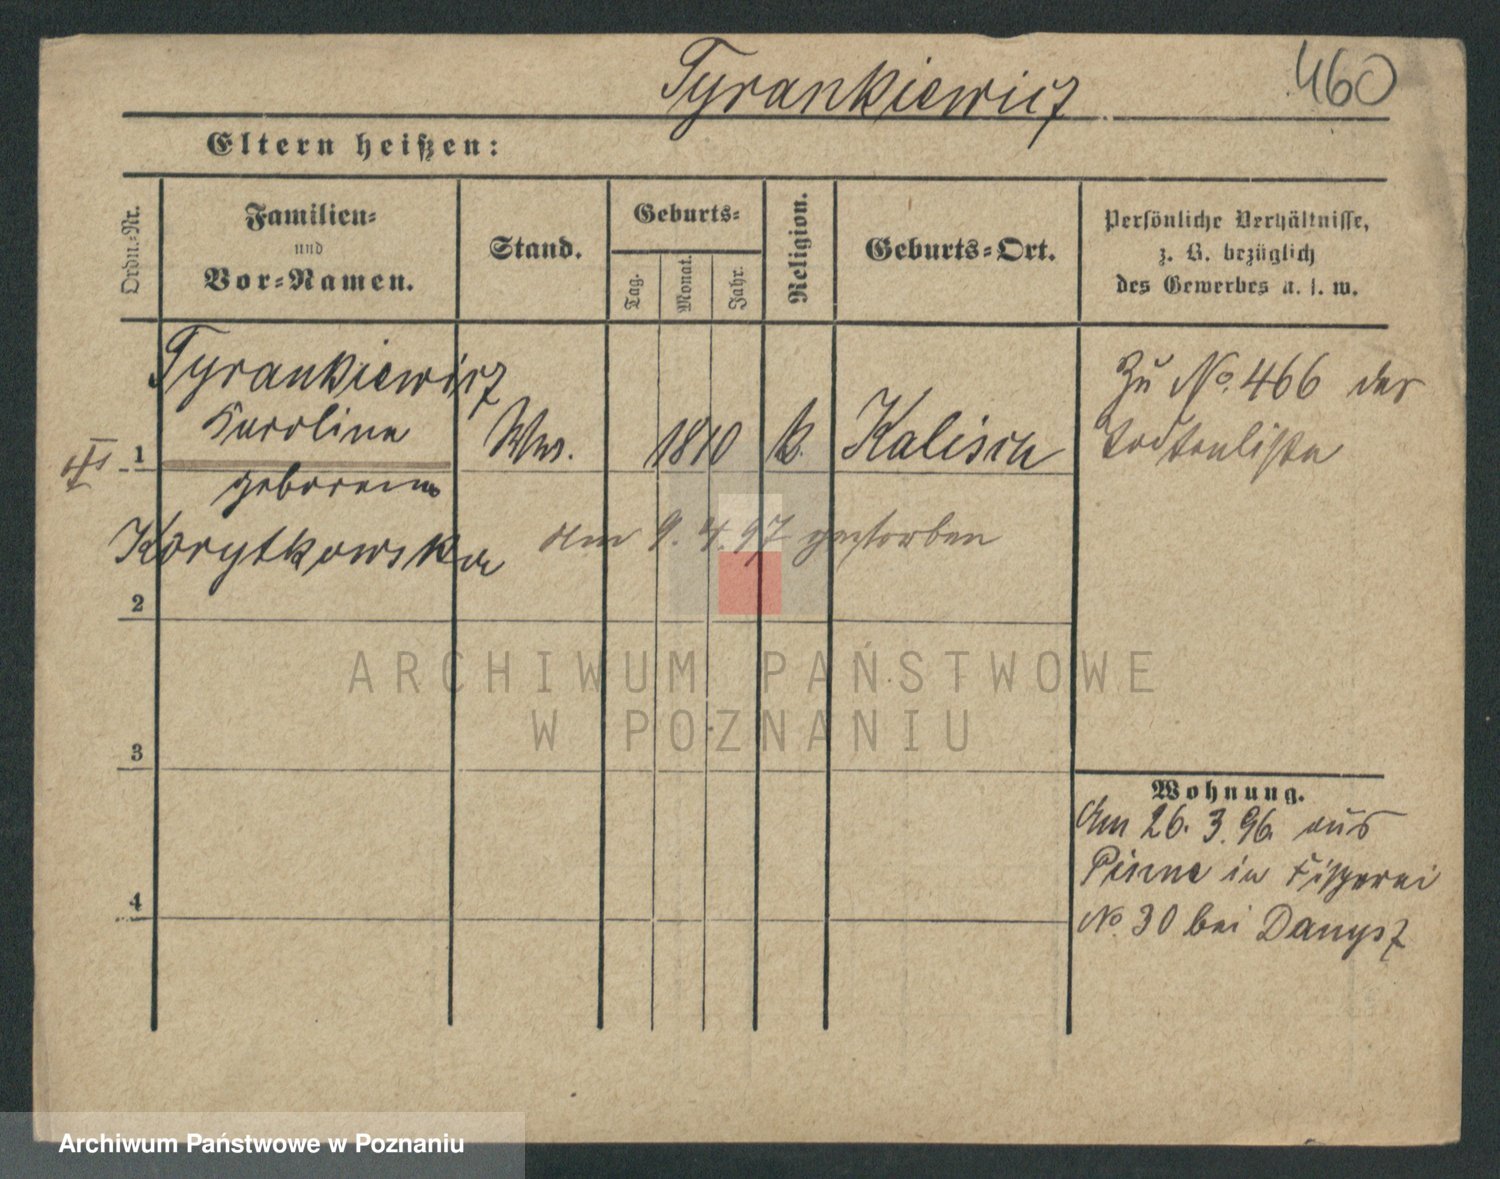 460
Tyrankiewicz
Eltern heißen:
Ordn.-Nr.
Familien-
und
Vor-Namen.
Stand.
Geburts-
Tag.
Monat.
Jahr.
Religion.
Geburts-Ort.
Persönliche Verhältnisse,
z. B. bezüglich
des Gewerbes u. s. w.
1
Tyrankiewicz
Karoline
geborene
Korytkowska
Ww.
1810
k.
Kalisch
Zu No. 466 der
Todtenliste
am 9. 4. 97 gestorben
2
3
4
Wohnung.
Am 26. 3. 96. aus
Pinne in Fischerei
No. 30 bei Danysz
ARCHIWUM PAŃSTWOWE
W POZNANIU
Archiwum Państwowe w Poznaniu